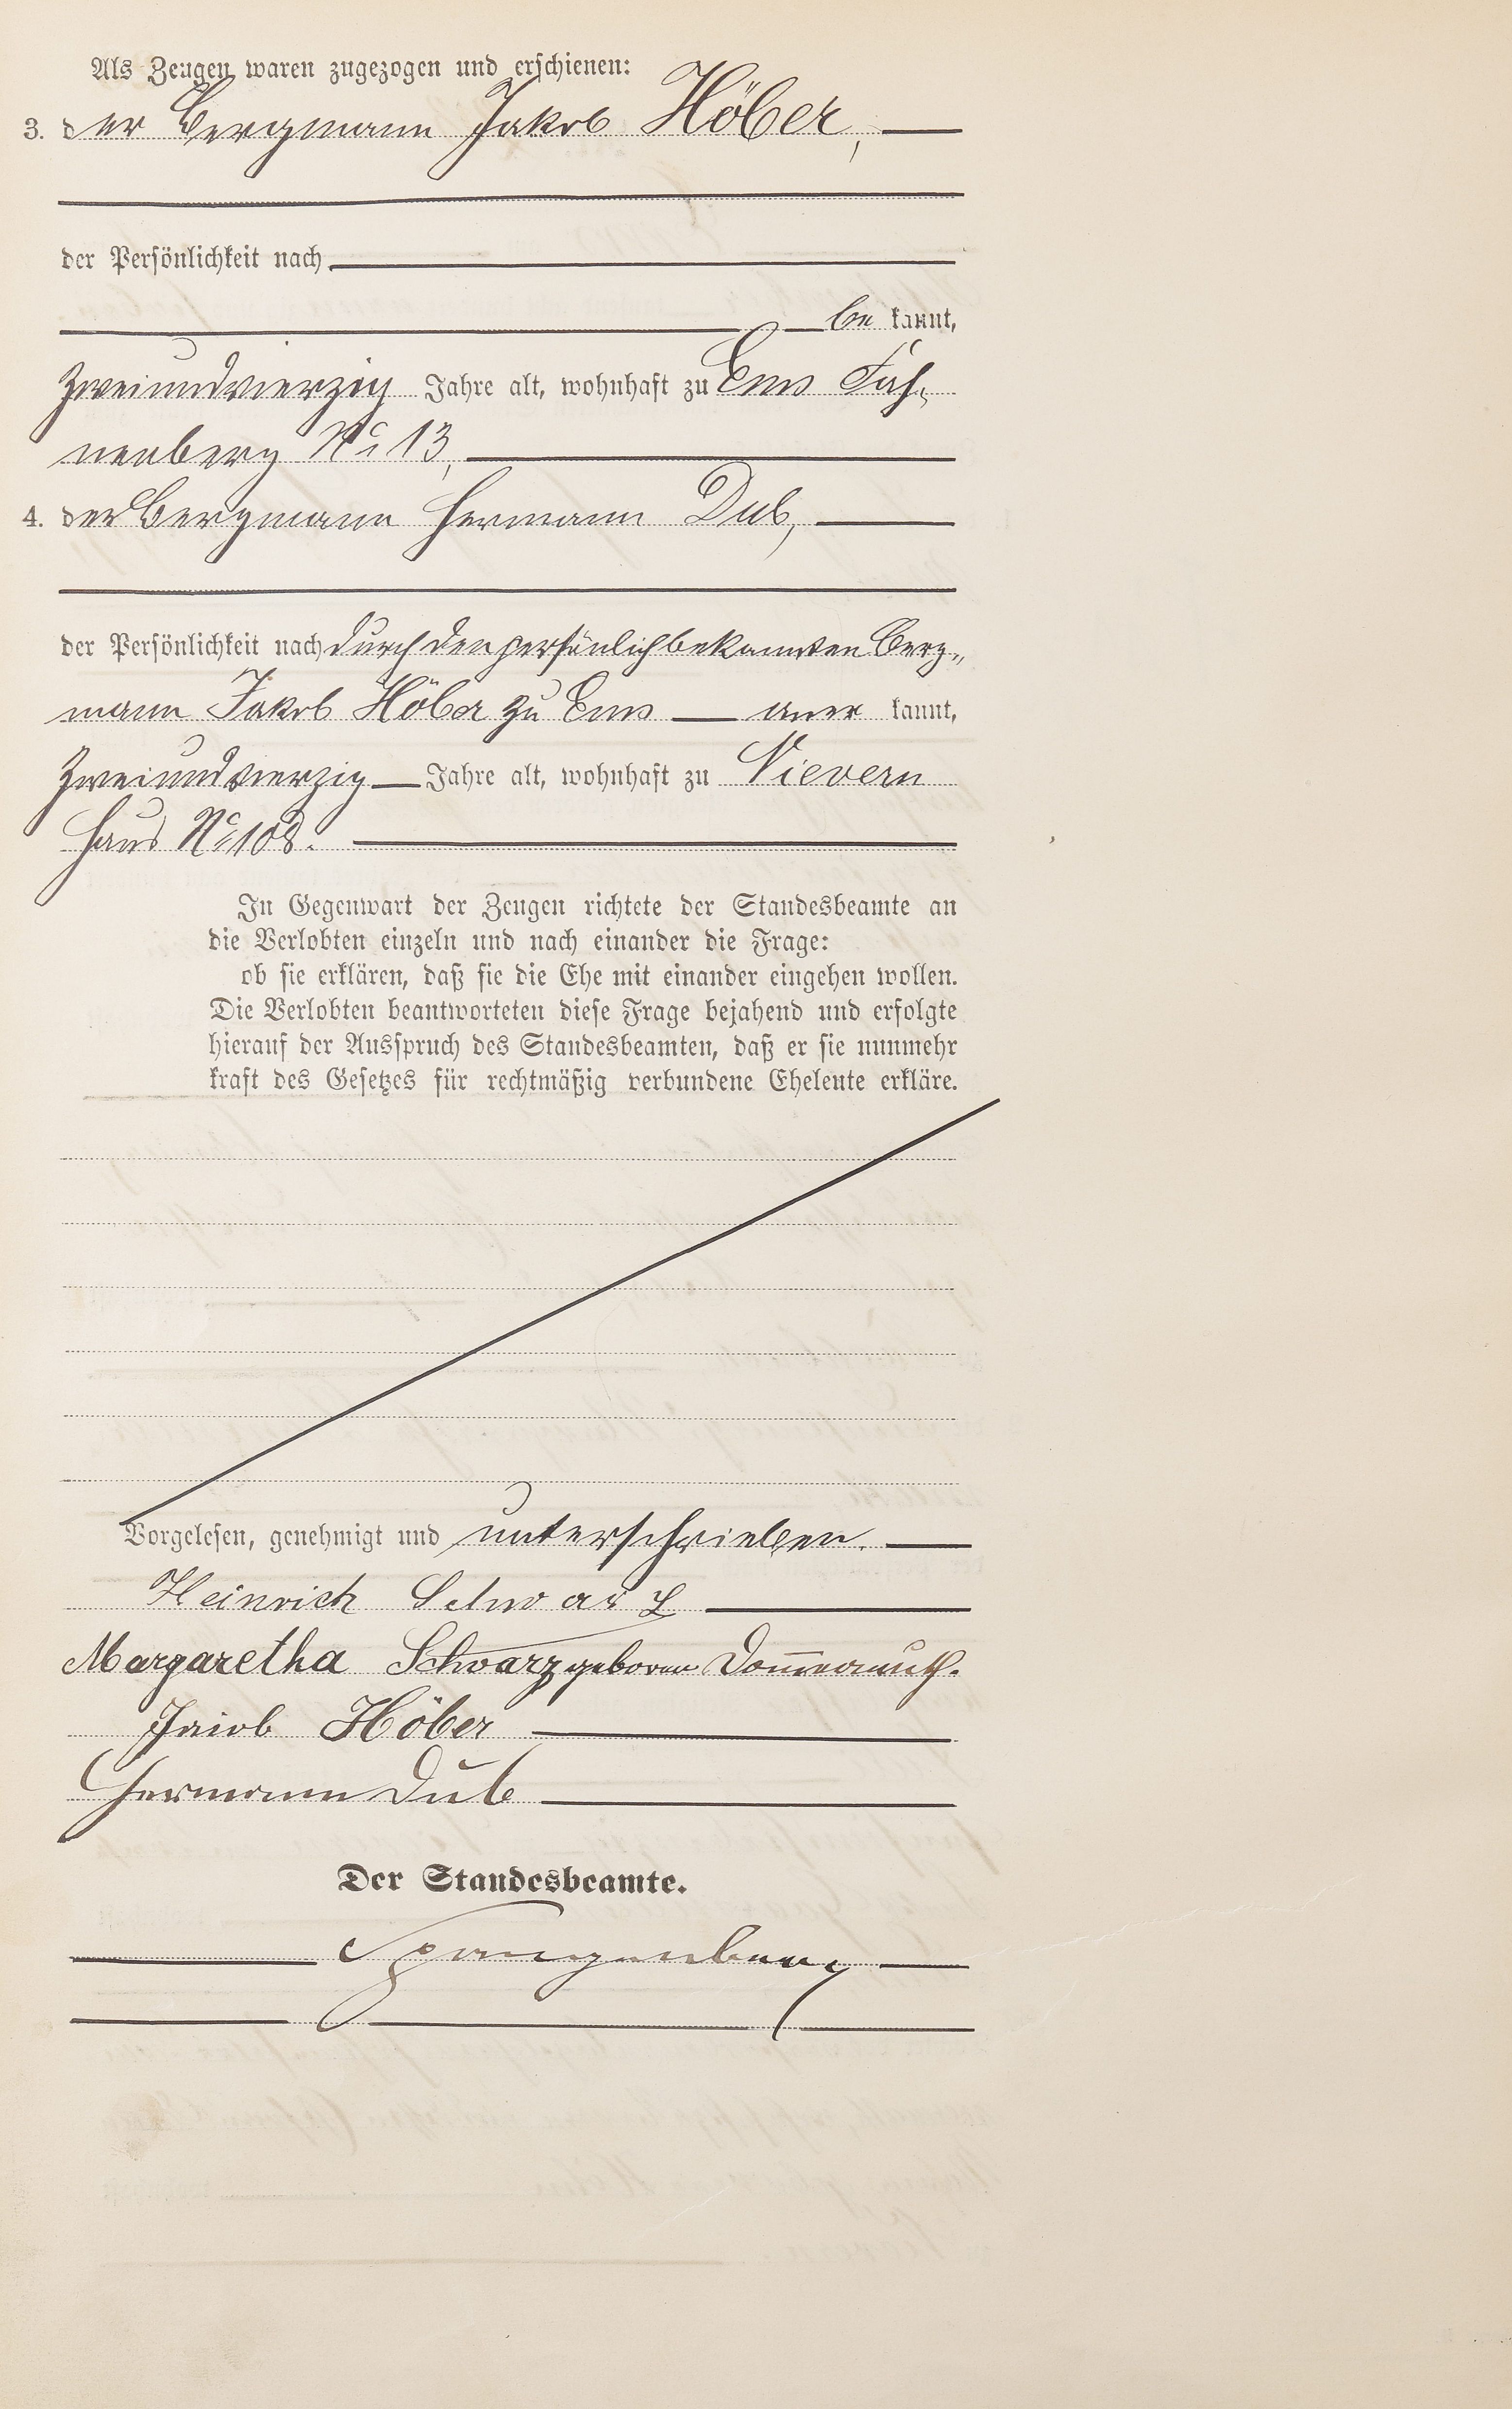 Als Zeugen waren zugezogen und erschienen:
3. der Bergmann Jakob Höber,
der Persönlichkeit nach
be kannt,
zweiundvierzig Jahre alt, wohnhaft zu Ems Fah-
nenberg No 13,
4. der Bergmann Hermann Dub,
der Persönlichkeit nach durch den persönlich bekannten Berg-
mann Jakob Höber zu Ems aner kannt,
zweiundvierzig Jahre alt, wohnhaft zu Nievern
Haus No 108.
In Gegenwart der Zeugen richtete der Standesbeamte an
die Verlobten einzeln und nach einander die Frage:
ob sie erklären, daß sie die Ehe mit einander eingehen wollen.
Die Verlobten beantworteten diese Frage bejahend und erfolgte
hierauf der Ausspruch des Standesbeamten, daß er sie nunmehr
kraft des Gesetzes für rechtmäßig verbundene Eheleute erkläre.
Vorgelesen, genehmigt und unterschrieben.
Heinrich Schwarz
Margaretha Schwarz geboren
Jakob Höber
Hermann Dub
Der Standesbeamte.
Spangenberg